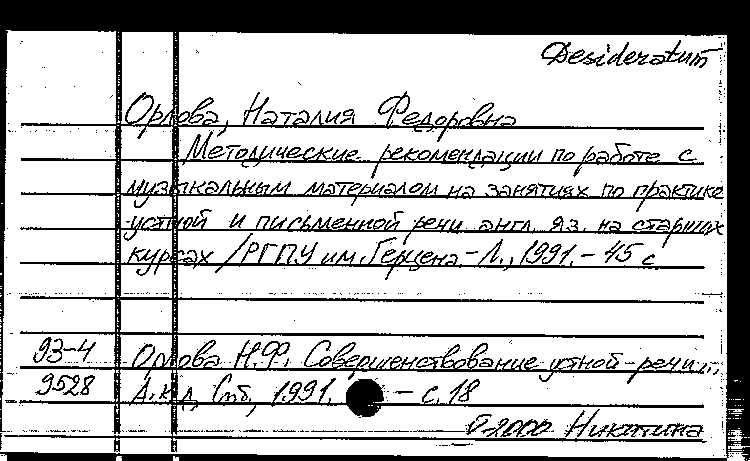 Desideratum
Орлова, Наталия Федоровна
Методические рекомендации по работе с
музыкальным материалом на занятиях по практике
устной и письменной речи англ. яз. на старших
курсах /РГПУ им. Герцена.-Л., 1991.- 45 с
93-4 Орлова Н.Ф. Совершенствование устной речи...
9528 А.к.д, Спб, 1991. - с. 18
V-2000 Никитина